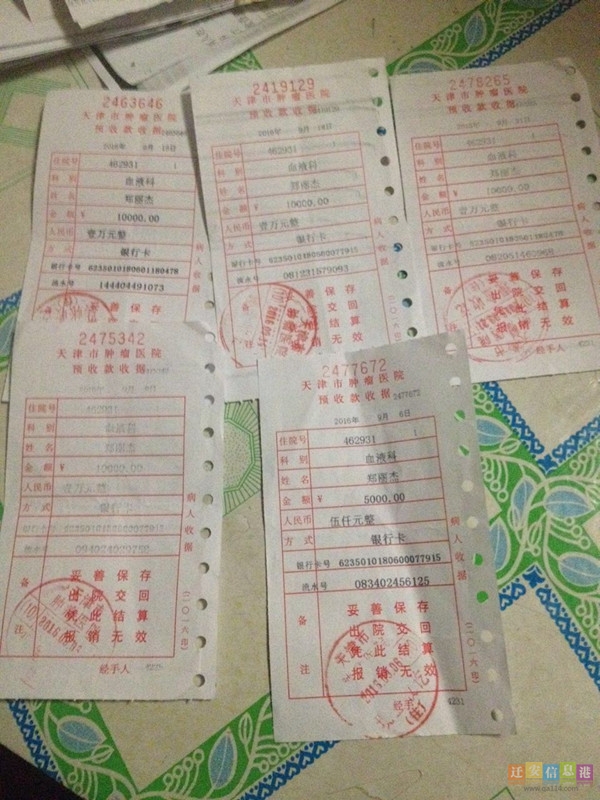 2463646
天津市肿瘤医院
预收款收据
2016年 8月 18日
住院号 462931 1
科别 血液科
姓名 郑丽杰
金额 ¥ 10000.00
人民币 壹万元整
方式 银行卡
银行卡号 6235010180601180478
流水号 144404491073
妥善保存
病人收据
2419129
天津市肿瘤医院
预收款收据
2016年
住院号 462931 1
科别 血液科
姓名 郑丽杰
金额 ¥ 10000.00
人民币 壹万元整
方式 银行卡
银行卡号 6235010180600077915
流水号 081231579093
妥善保存
出院交回
凭此结算
报销无效
病人收据
(二〇一六年)
2478265
天津市肿瘤医院
预收款收据
住院号 462931 1
科别 血液科
姓名 郑丽杰
金额 ¥ 10000.00
人民币 壹万元整
方式 银行卡
银行卡号
流水号
妥善保存
出院交回
凭此结算
报销无效
病人收据
(二〇一六年)
经手人 4231
2475342
天津市肿瘤医院
预收款收据
住院号 462931
科别 血液科
姓名 郑丽杰
金额 ¥ 10000.00
人民币 壹万元整
方式 银行卡
银行卡号
流水号
备注
妥善保存
出院交回
凭此结算
报销无效
病人收据
(二〇一六年)
经手人
2477672
天津市肿瘤医院
预收款收据 2477672
2016年 9月 6日
住院号 462931 1
科别 血液科
姓名 郑丽杰
金额 ¥ 5000.00
人民币 伍仟元整
方式 银行卡
银行卡号 6235010180600077915
流水号 083402456125
备注
妥善保存
出院交回
凭此结算
报销无效
病人收据
(二〇一六年)
经手人 4231
迁安信息港
www.qx114.com